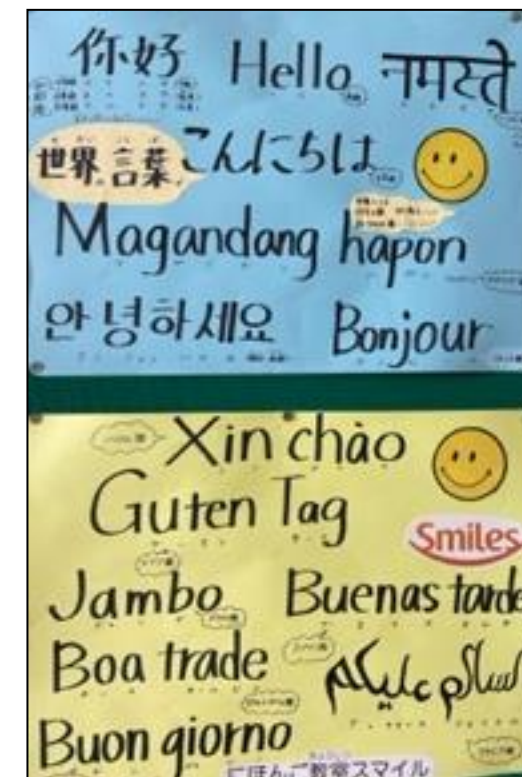 你好 Hello नमस्ते
世界の言葉 こんにちは
Magandang hapon
안녕하세요 Bonjour
Xin chào
Guten Tag
Smiles
Jambo Buenas tarde
Boa trade السلام عليكم
Buon giorno
にほんご教室スマイル